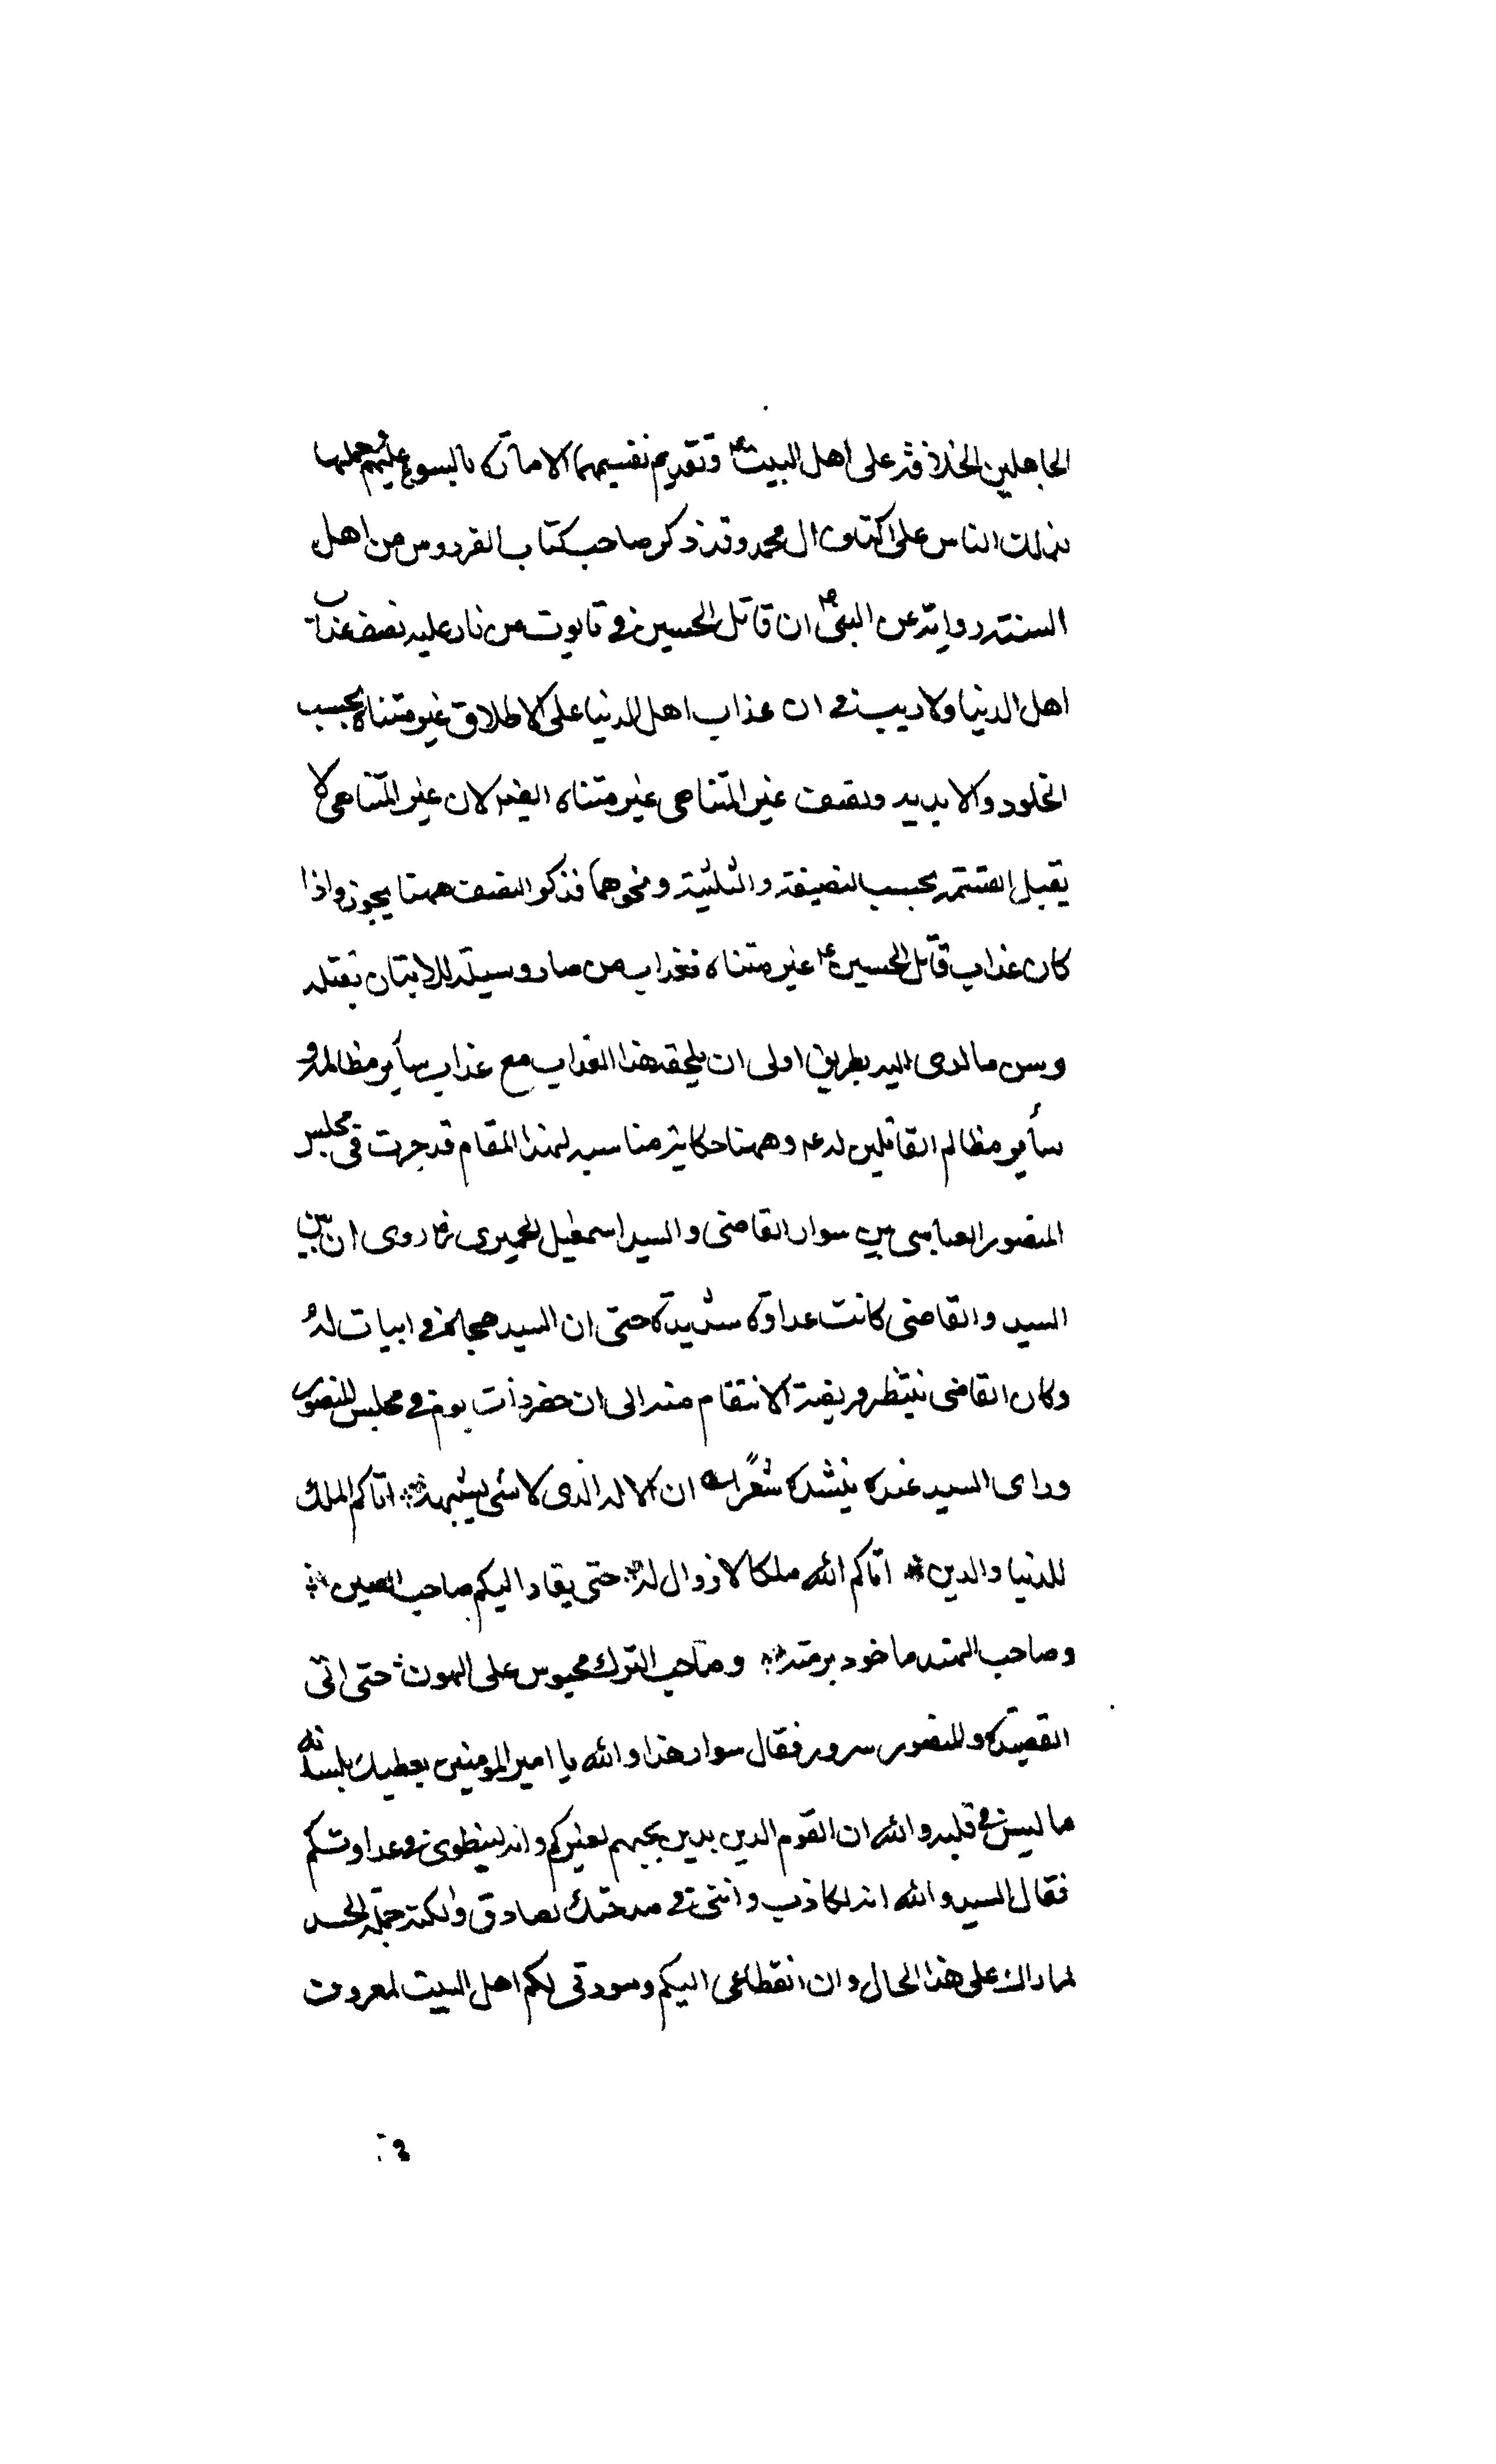 الجاهلين الخلافة على اهل البيت ع وتقديم نفسيهما الامارة بالسوء عليهم حملها
الناس على اكتاف ال محمد وقد ذكر صاحب كتاب الفردوس من اهل
السنة رواية عن النبي ص ان قاتل الحسين في تابوت من نار عليه نصف عذاب
اهل الدنيا ولا ريب في ان عذاب اهل الدنيا على الاطلاق غير متناه بحسب
الخلود والابدية ونصف غير المتناهي غير متناه ايضا لان غير المتناهي لا
يقبل القسمة بحسب النصيفة والثلثية ونحوهما فذكر النصف ههنا يجوز واذا
كان عذاب قاتل الحسين ع غير متناه فعذاب من صار وسيلة للاتيان بقتله
وسن ما ادى اليه بطريق اولى ان يلحقه هذا العذاب مع عذاب سأير مظالمه و
سأير مظالم القاتلين له ع وههنا حكاية مناسبة لهذا المقام قد جرت في مجلس
المنصور العباسي بين سوار القاضي والسيد اسمعيل الحميري روى ان بين
السيد والقاضي كانت عداوة شديدة حتى ان السيد هجاه في ابيات له
وكان القاضي ينتظر فريضة الانتقام منه الى ان حضر ذات يوم في مجلس المنصور
وراى السيد عنده ينشده شعرا ان الاله الذي لا شي يشبهه اتاكم الملك
للدنيا والدين اتاكم الله ملكا لا زوال له حتى يقاد اليكم صاحب الصين
وصاحب الهند ماخوذ برمته وصاحب الترك محبوس على الهون حتى اتى
القصيدة والمنصور سرور فقال سوار هذا والله يا امير المومنين يعطيك بلسانه
ما ليس في قلبه والله ان القوم الذين يدين بحبهم لغيركم وانه لينطوي في عداوتكم
فقال السيد والله انه لكاذب وانني في مدحتك لصادق ولكنه حمله الحسد
لما راك على هذا الحال وان انقطاعي اليكم ومودتي لكم اهل البيت لمعروف